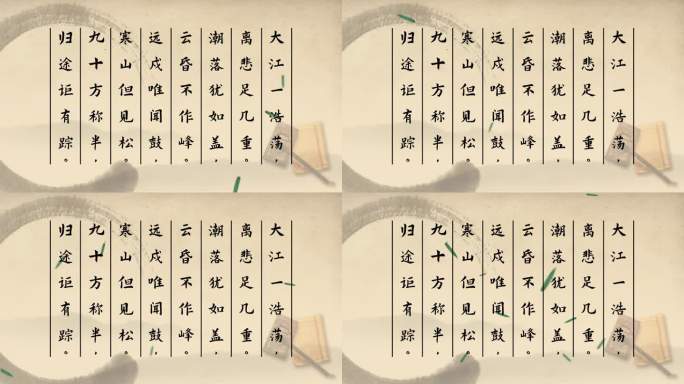 大江一浩荡，
离悲足几重。
潮落犹如盖，
云昏不作峰。
远戍唯闻鼓，
寒山但见松。
九十方称半，
归途讵有踪。
大江一浩荡，
离悲足几重。
潮落犹如盖，
云昏不作峰。
远戍唯闻鼓，
寒山但见松。
九十方称半，
归途讵有踪。
大江一浩荡，
离悲足几重。
潮落犹如盖，
云昏不作峰。
远戍唯闻鼓，
寒山但见松。
九十方称半，
归途讵有踪。
大江一浩荡，
离悲足几重。
潮落犹如盖，
云昏不作峰。
远戍唯闻鼓，
寒山但见松。
九十方称半，
归途讵有踪。